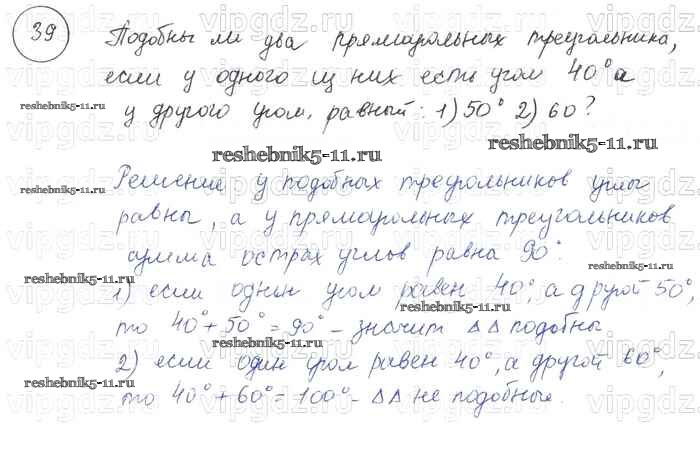 39
Подобны ли два прямоугольных треугольника,
если у одного из них есть угол 40° а
у другого угол, равный: 1) 50° 2) 60?
reshebnik5-11.ru
reshebnik5-11.ru
reshebnik5-11.ru
Решение у подобных треугольников углы
равны, а у прямоугольных треугольников
сумма острах углов равна 90°.
reshebnik5-11.ru
reshebnik5-11.ru
1) если один угол равен 40°, а другой 50°,
reshebnik5-11.ru
то 40° + 50° = 90° - значит ΔΔ подобны
reshebnik5-11.ru
2) если один угол равен 40°, а другой 60°,
reshebnik5-11.ru
то 40° + 60° = 100° - ΔΔ не подобные.
vipgdz.ru